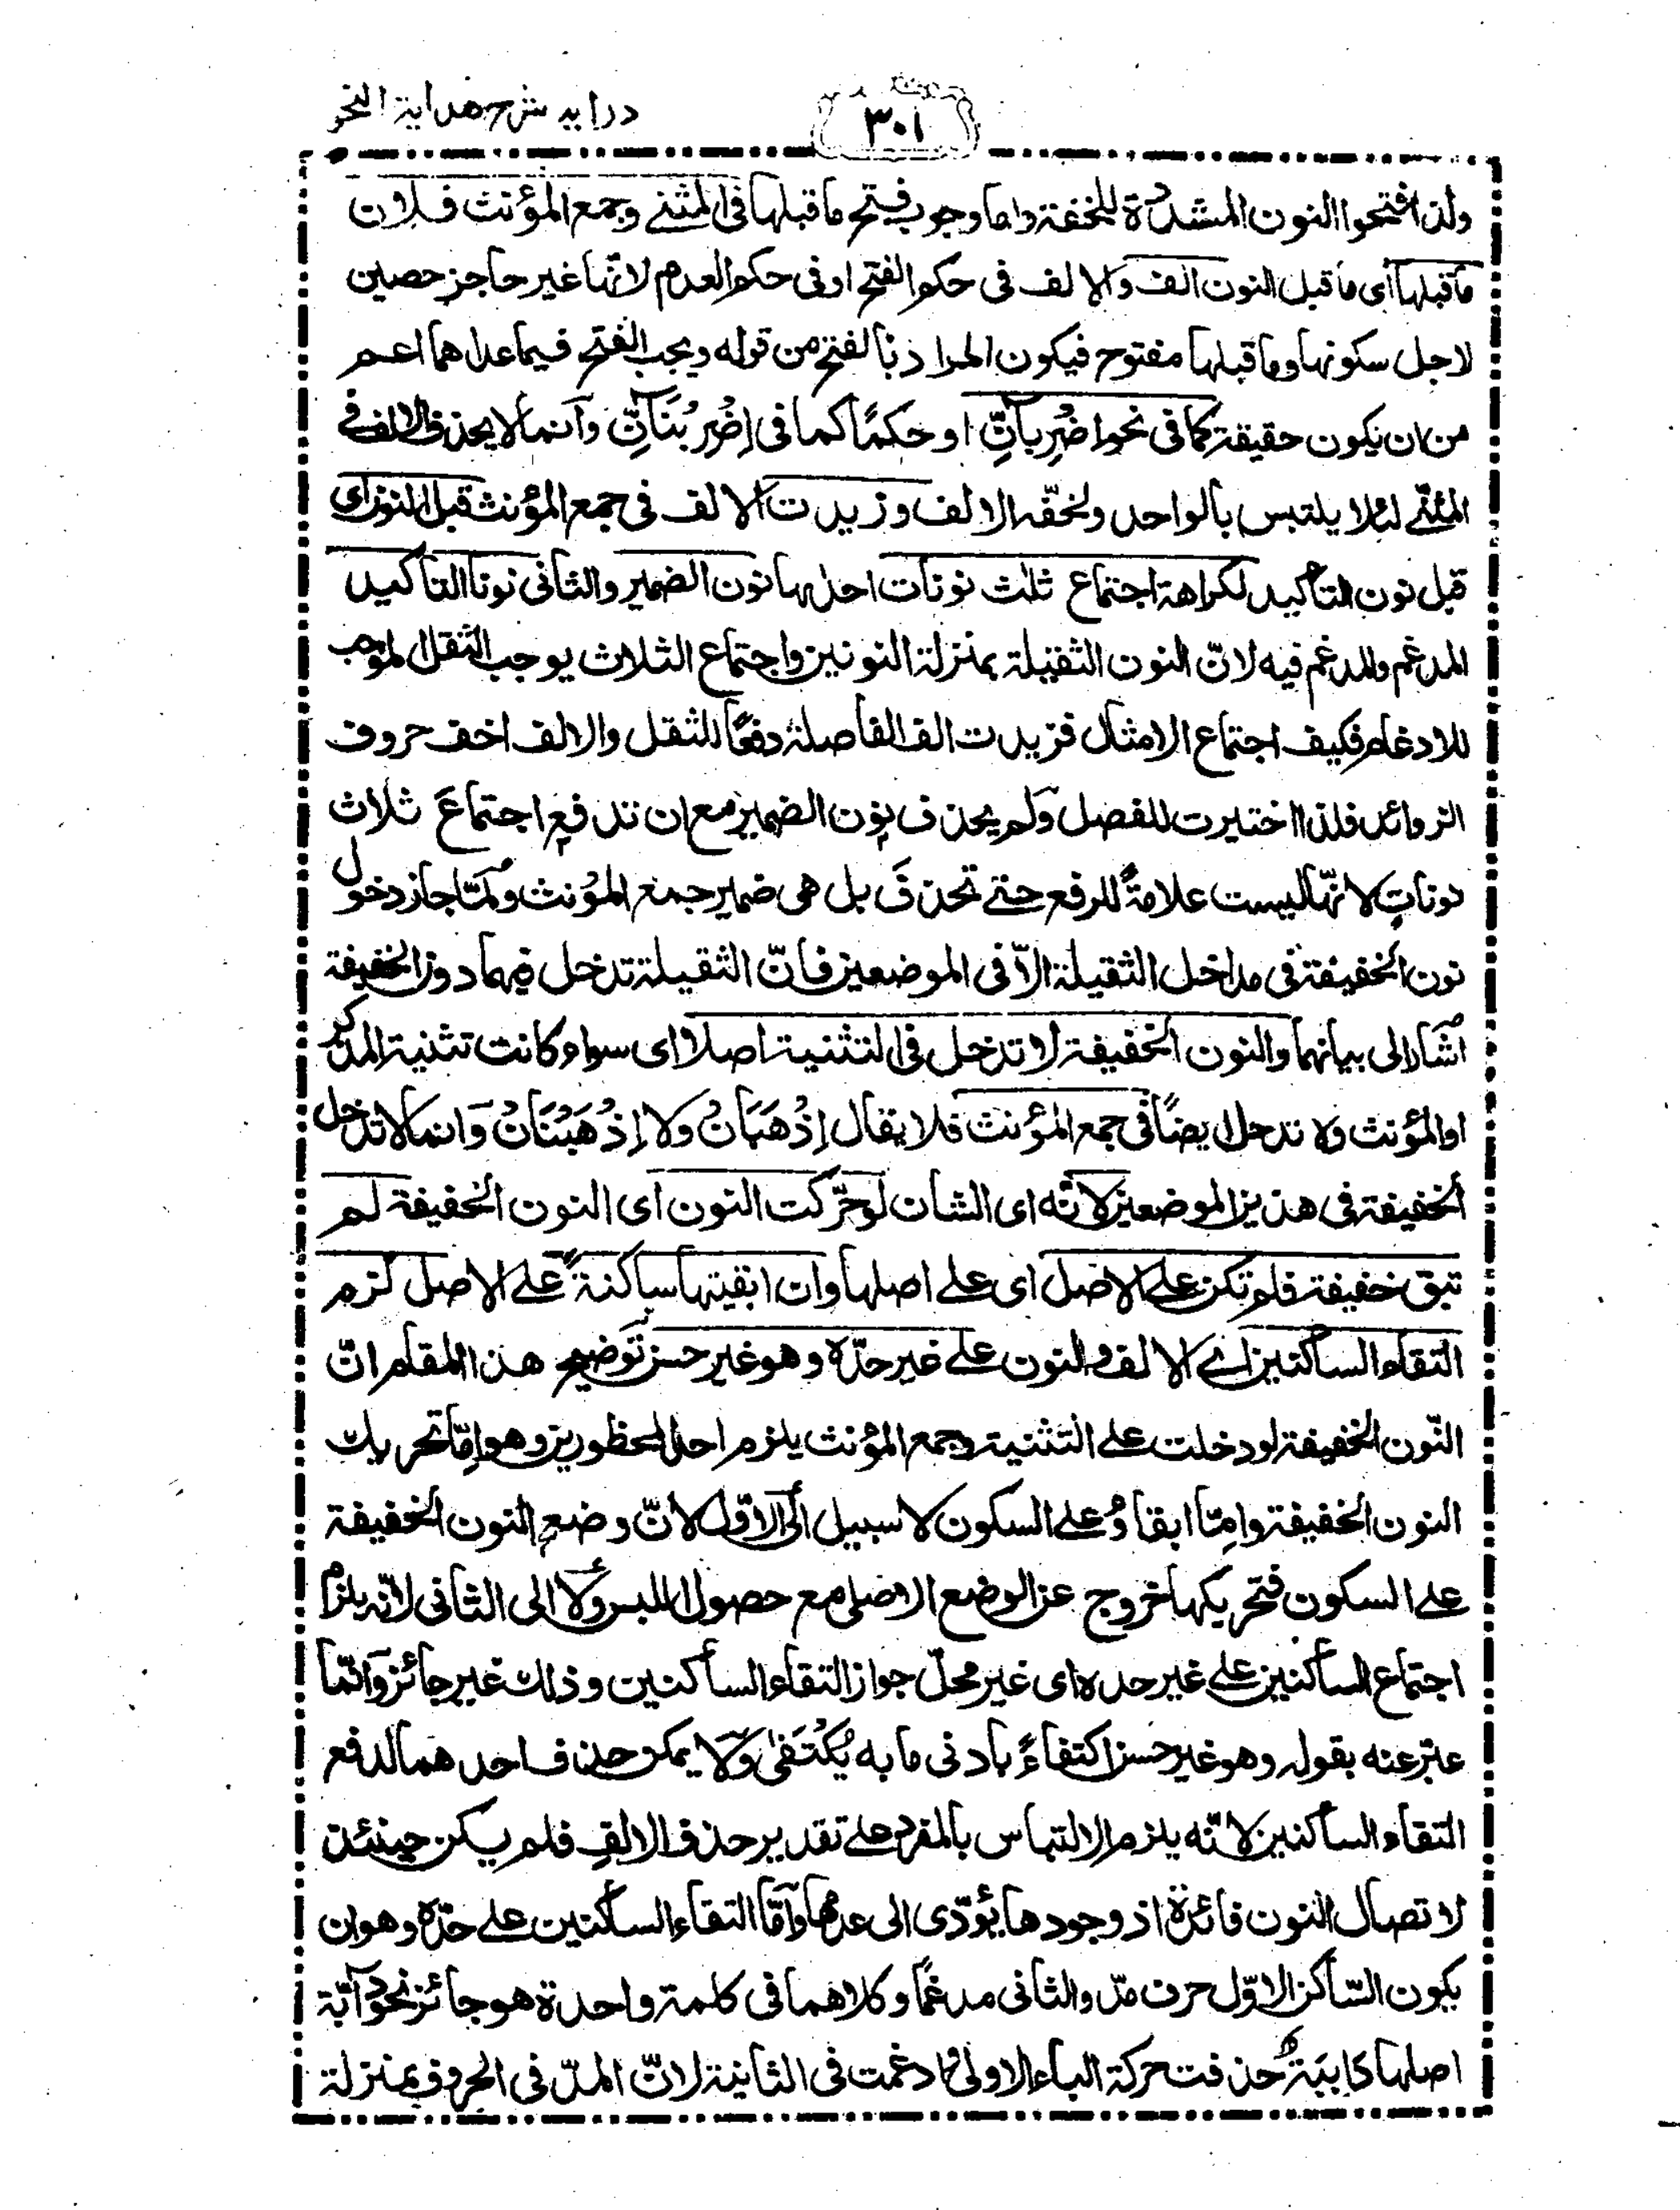 درايہ شرح هداية النحو
٣٠١
ولذا فتحوا النون المشددة للخفة واما وجوب فتح ما قبلها فى المثنے وجمع المؤنث فلان
ما قبلها اى ما قبل النون الف والالف فى حكم الفتح او فى حكم العدم لانّها غير حاجز حصين
لاجل سكونها وما قبلها مفتوح فيكون المراد بالفتح من قوله ويجب الفتح فيما عداهما اعم
من ان يكون حقيقة كما فى نحو اضْرِبانِّ او حكمًا كما فى اِضْرِبْنَانِّ وانما لا يحذف الالف فے
المثنّے لئلا يلتبس بالواحد ولخفّه الالف وزيدت الالف فى جمع المؤنث قبل النون اى
قبل نون التاكيد لكراهة اجتماع ثلث نونات احدٰها نون الضمير والثانى نونا التاكيد
المدغم والمدغم فيه لانّ النون الثقيلة بمنزلة النونين واجتماع الثلاث يوجب الثقل الموجب
للادغام فكيف اجتماع الامثال فزيدت الف الفاصلة دفعًا للثقل والالف اخف حروف
الزوائد فلذا اختيرت للفصل ولم يحذف نون الضمير مع ان تدفع اجتماعَ ثلاث
نوناتٍ لانّها ليست علامةً للرفع حتے تحذفَ بل هى ضمير جمع المؤنث ولمّا جاز دخول
نون الخفيفة فى مداخل الثقيلة الّا فى الموضعين فانّ الثقيلة تدخل فيهما دون الخفيفة
اشار الى بيانهما والنون الخفيفة لا تدخل فى التثنية اصلا اى سواء كانت تثنية المذكر
او المؤنث ولا تدخل ايضًا فى جمع المؤنث فلا يقال اِذْهَبَانْ ولا اِذْهَبْنَانْ وانما لا تدخل
الخفيفة فى هذين الموضعين لانّه اى الشان لو حرّكت النون اى النون الخفيفة لم
تبق خفيفة فلم تكن علے الاصل اى علے اصلها وان ابقيتها ساكنةً علے الاصل لزم
التقاء الساكنين اے الالف والنون علے غير حدّه وهو غير حسن توضيح هذا المقام انّ
النّون الخفيفة لو دخلت علے التثنية وجمع المؤنث يلزم احد المحظورين وهو امّا تحريك
النون الخفيفة وامّا ابقاؤُ علے السكون لا سبيل الى الاوّل لانّ وضع النون الخفيفة
علے السكون فتحريكها خروج عن الوضع الاصلى مع حصول اللبس ولا الى الثانى لانّه يلزم
اجتماع الساكنين علے غير حده اى غير محلّ جواز التقاء الساكنين وذلك غير جائز وانّما
عبّر عنه بقوله وهو غير حسن اكتفاءً بادنى ما به يُكْتَفىٰ ولا يمكن حذف احدهما لدفع
التقاء الساكنين لانّه يلزم الالتباس بالمفرد علے تقدير حذف الالف فلم يكن حينئذ
لاتصال النون فائدة اذ وجودها يؤدّى الى عدمها وامّا التقاء الساكنين علے حدّه وهو ان
يكون السّاكن الاوّل حرف مدّ والثانى مدغمًا وكلاهما فى كلمة واحدة هو جائز نحو دآبّة
اصلها دَابِبَةٌ حذفت حركة الباء الاولى وادغمت فى الثانية لانّ المدّ فى الحروف بمنزلة